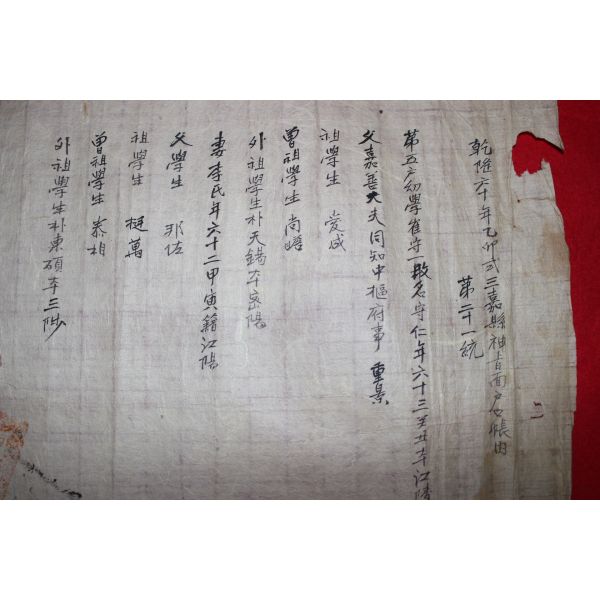 乾隆六十年乙卯式三嘉縣神旨面戶口帳內
第二十一統
第五戶幼學崔守一改名守仁年六十三癸丑本江陵
父嘉善大夫同知中樞府事 重景
祖學生 愛成
曾祖學生 尚晤
外祖學生朴天錫本密陽
妻李氏年六十二甲寅籍江陽
父學生 邦佐
祖學生 挺萬
曾祖學生 泰相
外祖學生朴東碩本三陟